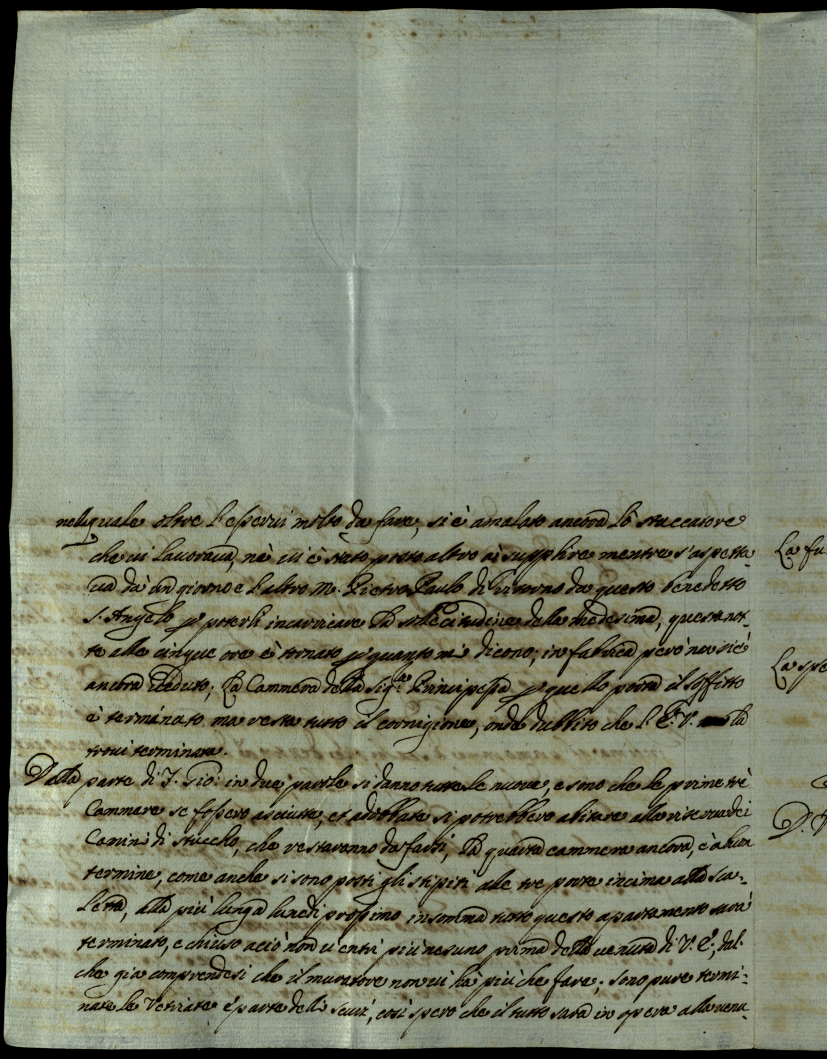 nella quale oltre l'esservi molto da fare, si è amalato ancora lo stuccatore
che vi lavorava, nè vi è stato posto altro à supplire mentre s'aspetta-
va dà un giorno e l'altro M. Pietro Paulo di ritorno da questo benedetto
S. Angelo p poterli incarricare la sollecitudine della medesima, questa not-
te alle cinque ore è tornato p quanto mi dicono; in fabrica però non si è
ancora veduto; La Cammera della Sig.ra Principessa p quello porta il soffitto
è terminato ma resta tutto il cornigione, onde dubbito che l'E. V. la
trovi terminata.
Dalla parte di S. Gio: in due parole si danno tutte le nuove, e sono che le prime trè
Cammere se fossero asciutte, et adobbate si potrebbero abitare alla riserva dei
Camini di stuccho, che restaranno da farsi, la quarta cammera ancora, è à buon
termine, come anche si sono posti gli stipiti alle tre porte incima alla sca-
letta, alla più lunga lunedi prossimo in somma tutto questo apartamento sarà
terminato, e chiuso acciò non vi entri più nesuno prima della venuta di V. E., dal
che già comprendesi che il muratore non vi hà più che fare; sono pure termi-
nate le Vetriate è parte delli scuri, così spero che il tutto sarà in opera alla venu-
La fu
La spe
D. V